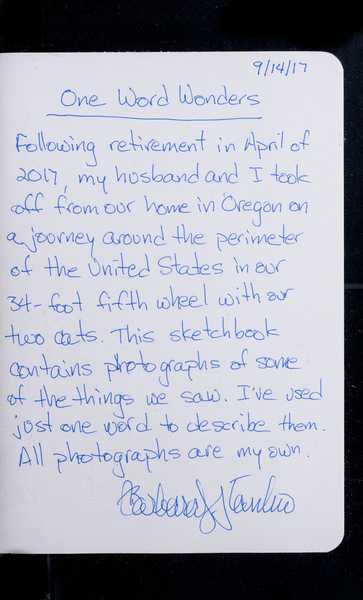 9/14/17
One Word Wonders
Following retirement in April of
2017, my husband and I took
off from our home in Oregon on
a journey around the perimeter
of the United States in our
34-foot fifth wheel with our
two cats. This sketchbook
contains photographs of some
of the things we saw. I've used
just one word to describe them.
All photographs are my own.
Barbara J